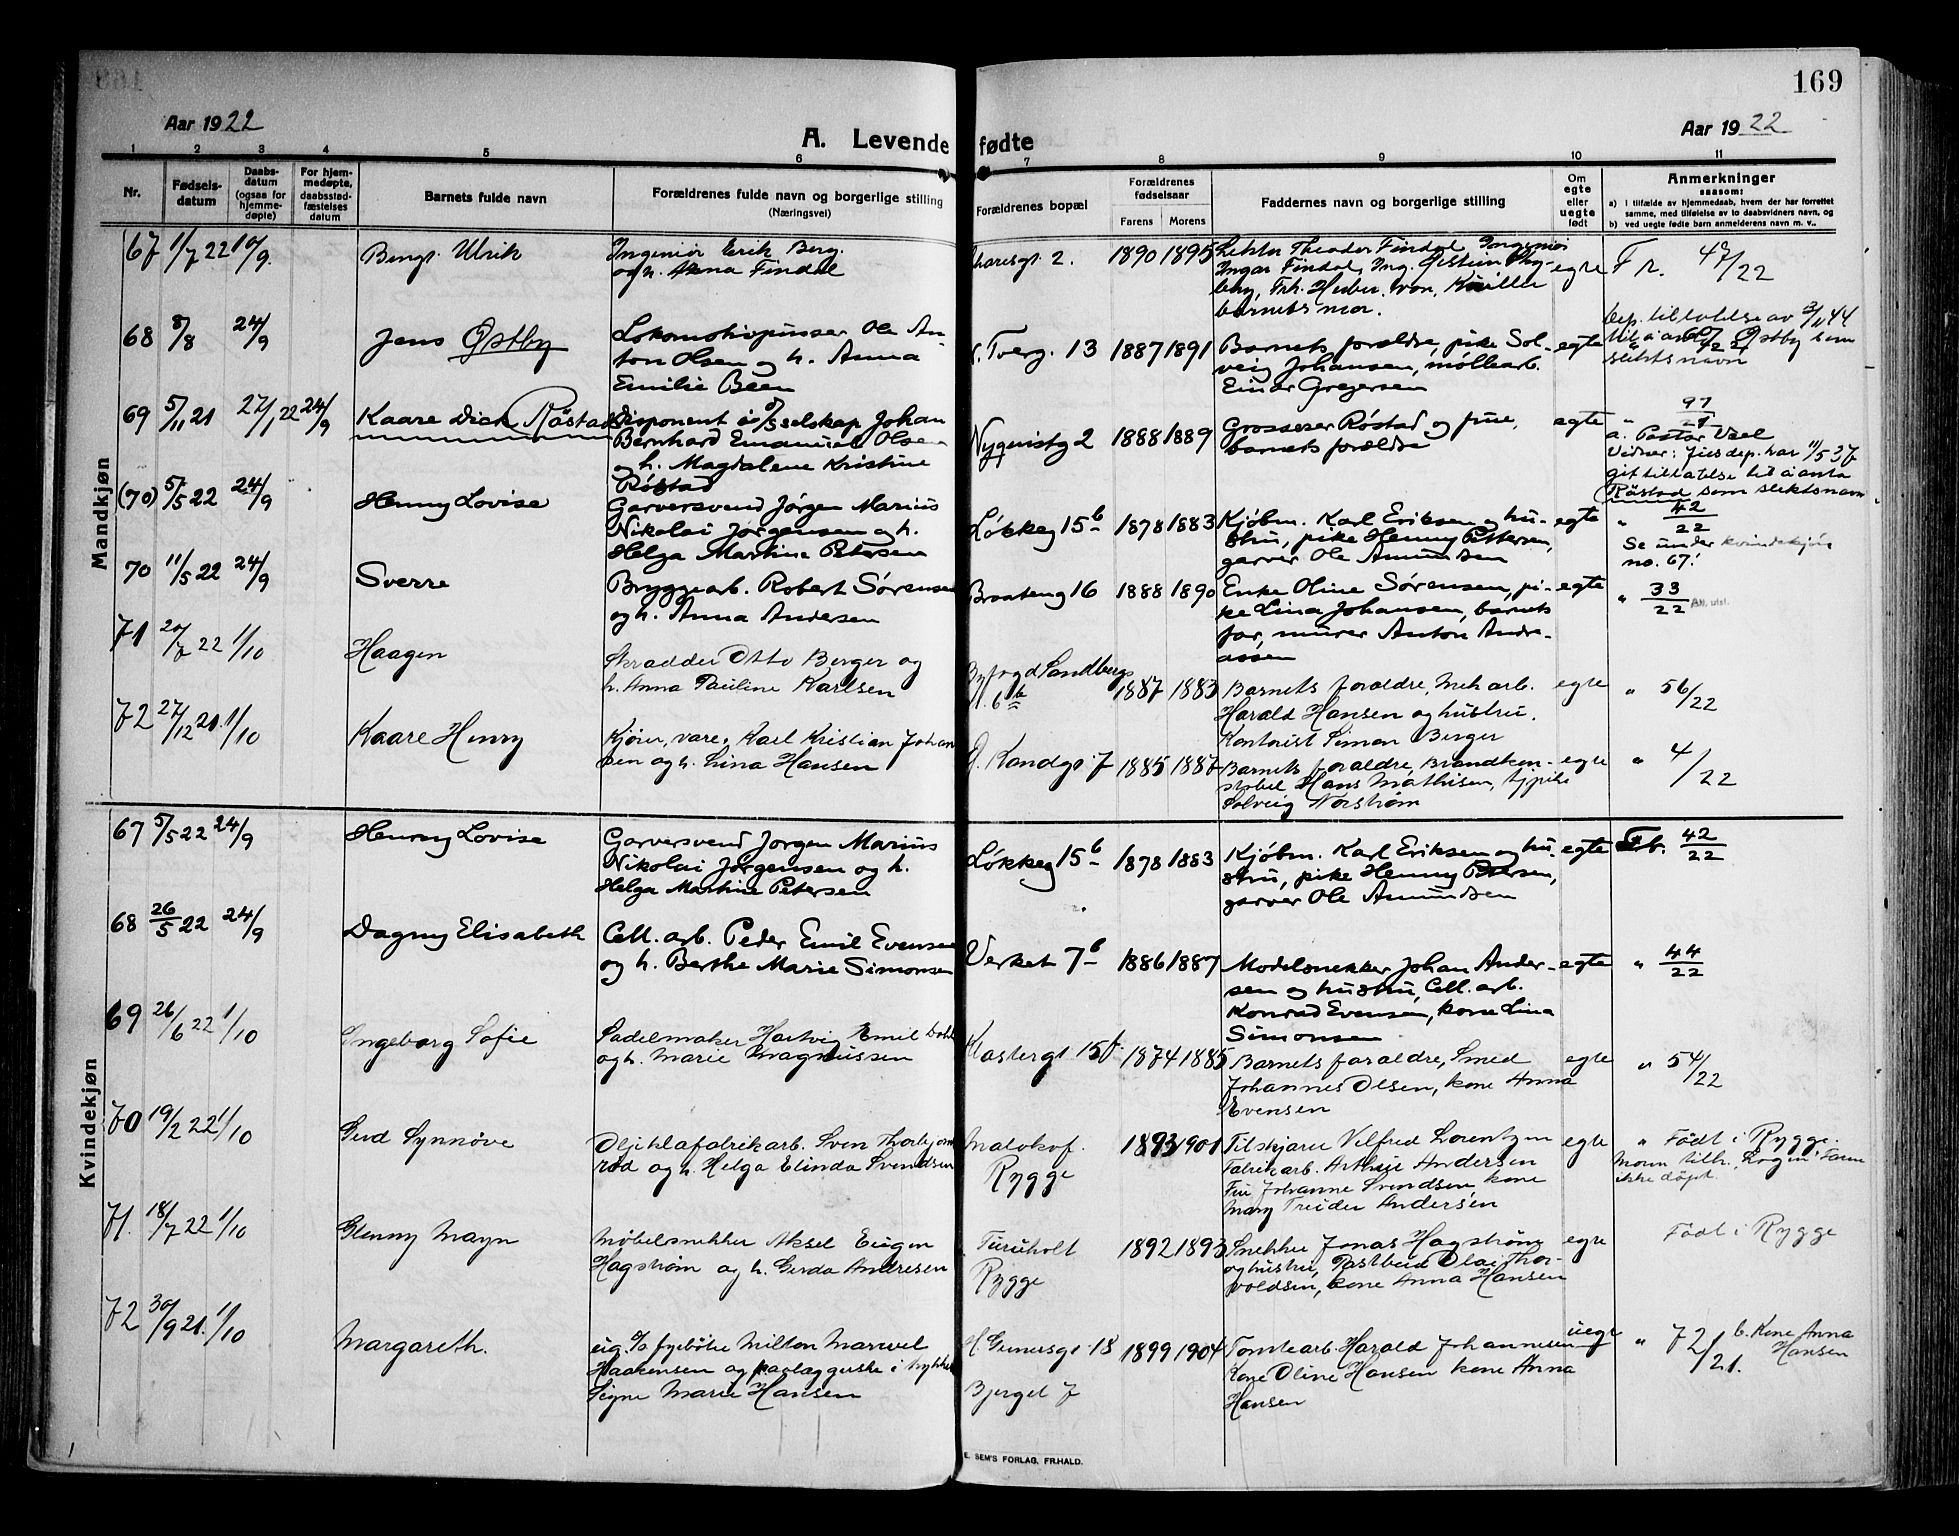 169
Aar 1922
A. Levende fødte
Aar 1922
1 2 3 4 5 6 7 8 9 10 11
Nr.
Fødsels-
datum
Daabs-
datum
(ogsaa for
hjemme-
døpte)
For hjem-
medøpte,
daabsstad-
fæstelses
datum
Barnets fulde navn
Forældrenes fulde navn og borgerlige stilling
(Næringsvei)
Forældrenes bopæl
Forældrenes
fødselsaar
Farens Morens
Faddernes navn og borgerlige stilling
Om
egte
eller
uegte
født
Anmerkninger
saasom:
a) I tilfælde av hjemmedaab, hvem der har forrettet
samme, med tilføielse av to daabsvidners navn, og
b) ved uegte fødte barn anmelderens navn m. v..
Mandkjøn
67 1/7 22 10/9.
Ulrik
Ingeniør Erik Berg.
og h. Findal
2. 1890 1895
Lektor Theodor Findal, Ingeniør
Ingar Findal, Ing.
barnets mor.
egte
22
68 8/8 24/9
Jens Østby
Lokomotivpusser Ole An-
ton Olsen og h. Anna
Emilie Been
Tverg. 13 1887 1891
Barnets forældre, pike Sol-
veig Johansen, møllearb.
Einar Gregersen
egte
dep. tillatelse av 44
Østby som
slektsnavn
69 5/11 21 27/1 22 24/9
Kaare Dick Røstad
Disponent i selskap Johan
Bernhard Emanuel Olsen
og h. Magdalene Kristine
Røstad
Nyquistg 2 1888 1889
Grosserer Røstad og frue,
barnets forældre
egte
97/21
a. Pastor
Vidner: Jusdep. har 11/5 37
git tillatelse til å anta
Røstad som slektsnavn
(70) 5/5 22 24/9
Henny Lovise
Garversvend Jørgen Marius
Nikolai Jørgensen og h.
Helga Martine Petersen
Løkkeg 15 b 1878 1883
Kjøbm. Karl Eriksen og hu-
stru, pike Henny Pettersen,
garver Ole Amundsen
egte
" 42/22
Se under kvindekjøn
no. 67!
70 11/5 22 24/9
Sverre
Bryggearb. Robert Sørensen
og h. Anna Andersen
Braateng 16 1888 1890
Enke Oline Sørensen, pi-
ke Lina Johansen, barnets
far, murer Anton Andre-
assen
egte
" 33/22
71 20/7 22 1/10
Haagen
Skrædder Otto Berger og
h. Anna Pauline Karlsen
Byfogd Sandbergs
6 b 1887 1883
Barnets forældre, Mek arb.
Harald Hansen og hustru.
Kontorist Simon Berger
egte
" 56/22
72 27/12 21. 1/10
Kaare Henry
Karl Kristian Johan
sen og h. Lina Hansen
7 1885 1887
Barnets forældre, Brandkon-
stabel Hans Mathisen,
Solveig Norstrøm
egte
" 4/22
Kvindekjøn
67 5/5 22 24/9
Henny Lovise
Garversvend Jørgen Marius
Nikolai Jørgensen og h.
Helga Martine Petersen
Løkkeg 15 b 1878 1883
Kjøbm. Karl Eriksen og hu-
stru, pike Henny Petersen,
garver Ole Amundsen
egte
42/22
68 26/5 22 24/9
Dagny Elisabeth
Cell. arb. Peder Emil Evensen
og h. Berthe Marie Simonsen
Verket 7 b 1886 1887
Modelsnekker Johan Ander-
sen og hustru, Cell. arb.
Konrad Evensen, kone Lina
Simonsen
egte
" 44/22
69 26/6 22 1/10
Ingeborg Sofie
Sadelmaker Hartvig Emil Dahl
og h. Marie Magnussen
1874 1885
Barnets forældre, Smed
Johannes Olsen, kone Anna
Evensen
egte
" 54/22
70 19/2 22 1/10
Gerd Synnøve
Sven Thorbjørns
rød og h. Helga Elinda Svendsen
Rygge
1893 1901
Vilfred Lorentzen
Fabrikarb. Arthur Andersen
Fru Johanne Svendsen kone
Mary Andersen
egte
" Født i Rygge.
ikke døpt.
71. 18/7 22 1/10
Glenny Mayn
Møbelsnekker Aksel Eugen
Hagstrøm og h. Gerda Andresen
Furuholt
Rygge
1892 1893
Snekker Jonas Hagstrøm
og hustru, Olai Thor-
voldsen, kone Anna Hansen
egte
Født i Rygge
72 30/9 21. 1/10
Margareth.
Milton Marvel
Haakensen og
Signe Marie Hansen
18
Bjerget 7
1899 1904
Tomtearb. Harald Johannesen
Kone Oline Hansen kone Anna
Hansen
uegte
" 72/21. b. Kone Anna
Hansen
E. SEM'S FORLAG, FR.HALD.